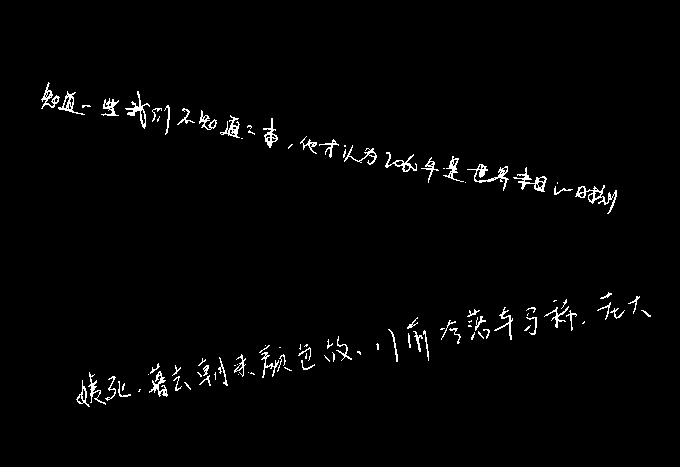 知道一些我们不知道之事，他才认为2060年是世界末日的时刻
姨死，暮去朝来颜色故、门前冷落车马稀，老大